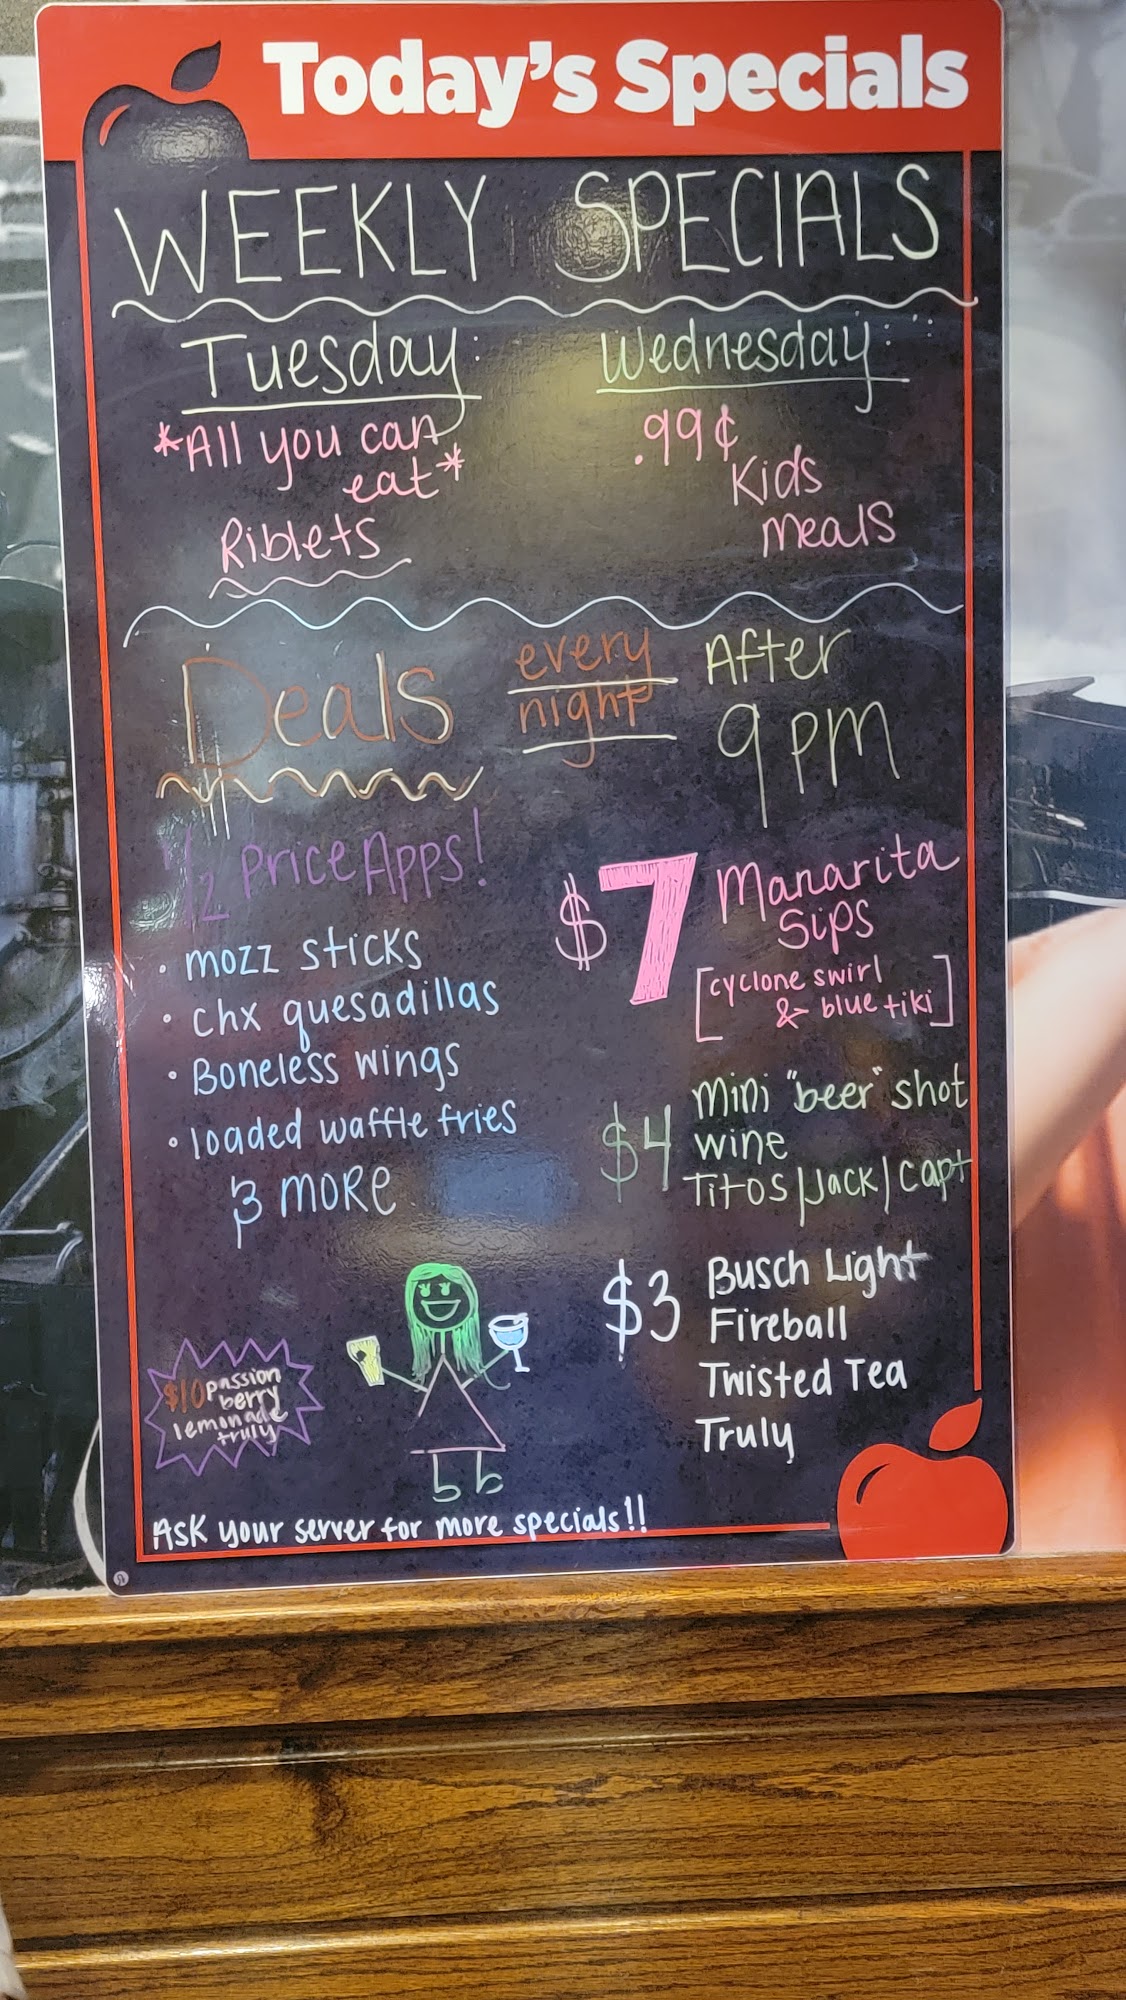 Today's Specials
WEEKLY SPECIALS
Tuesday:
*All you can
eat*
Riblets
Wednesday:
.99¢
Kids
meals
Deals
every
night
After
9pm
1/2 Price Apps!
• mozz sticks
• chx quesadillas
• Boneless wings
• loaded waffle fries
& MORE
$7 Manarita
Sips
[cyclone swirl
& blue tiki]
$4 mini "beer" shot
wine
Titos/Jack/Capt
$3 Busch Light
Fireball
Twisted Tea
Truly
$10 passion
berry
lemonade
truly
Ask your server for more specials!!